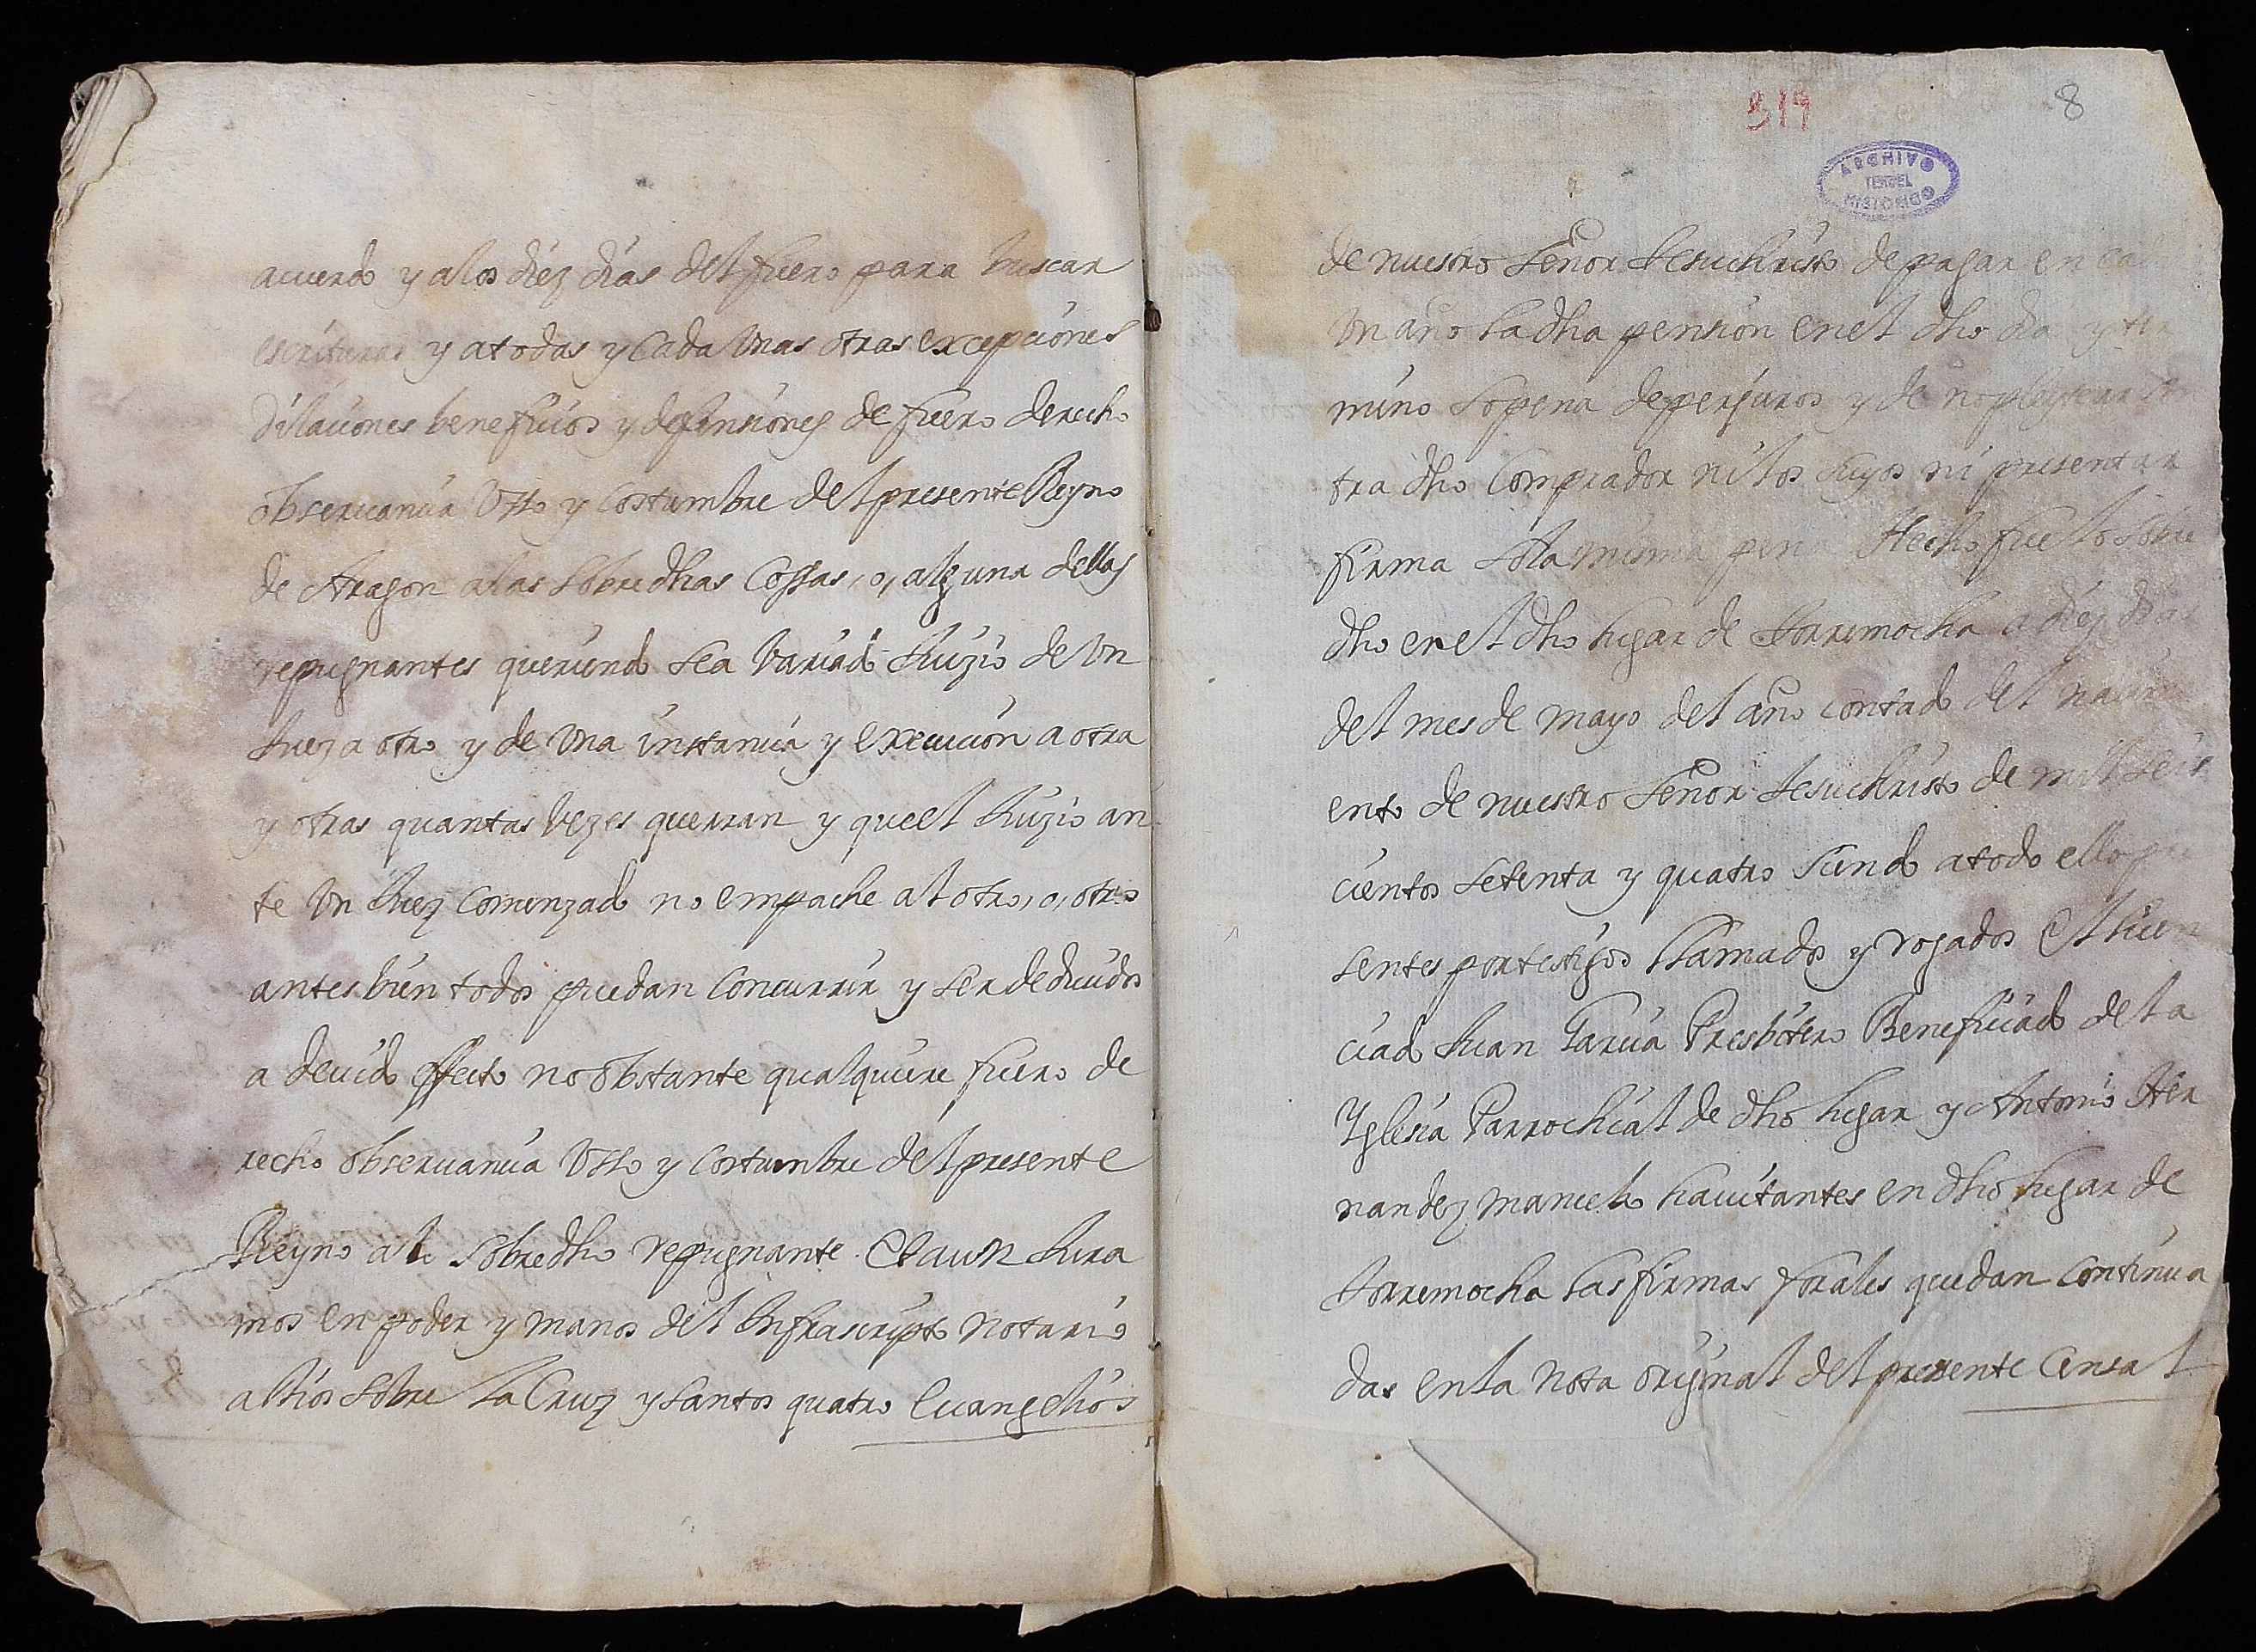 acuerdo y a los diez dias del fuero para buscar
escrituras y a todas y cada unas otras excepciones
dilaciones beneficios y defensiones de fuero derecho
obseruancia Usso y costumbre del presente Reyno
de Aragon a las sobredhas cossas, o, alguna dellas
repugnantes queriendo sea variado Juizio de Un
Juez a otro y de Una instancia y execucion a otra
y otras quantas Vezes querran y que el Juizio an
te Un Juez comenzado no empache al otro, o, otros
antes bien todos puedan concurrir y ser deducidos
a deuido effecto no obstante qualquiere fuero de
recho obseruancia Usso y costumbre del presente
Reyno a lo sobredho repugnante. Et aun Jura
mos en poder y manos del Infrascripto notario
a Dios sobre la Cruz y santos quatro Euangelios
519
8
ARCHIVO
TERUEL
HISTORICO
de nuestro Señor Jesuchristo de pagar en cad
Un año la dha pension en el dho dia y ter
mino so pena de perjuros y de no pleytear con
tra dho comprador ni los suyos ni presentar
firma so la misma pena Hecho fue lo sobre
dho en el dho lugar de Torremocha a diez dias
del mes de mayo del año contado del nacim
ento de nuestro Señor Jesuchristo de mil seis
cientos setenta y quatro siendo a todo ello pre
sentes por testigos llamados y rogados El licen
ciado Juan Garcia Presbitero Beneficiado de la
Yglesia Parrochial de dho lugar y Antonio Her
nandez mancebo hauitantes en dho lugar de
Torremocha las firmas forales quedan continua
das en la nota original del presente Censal